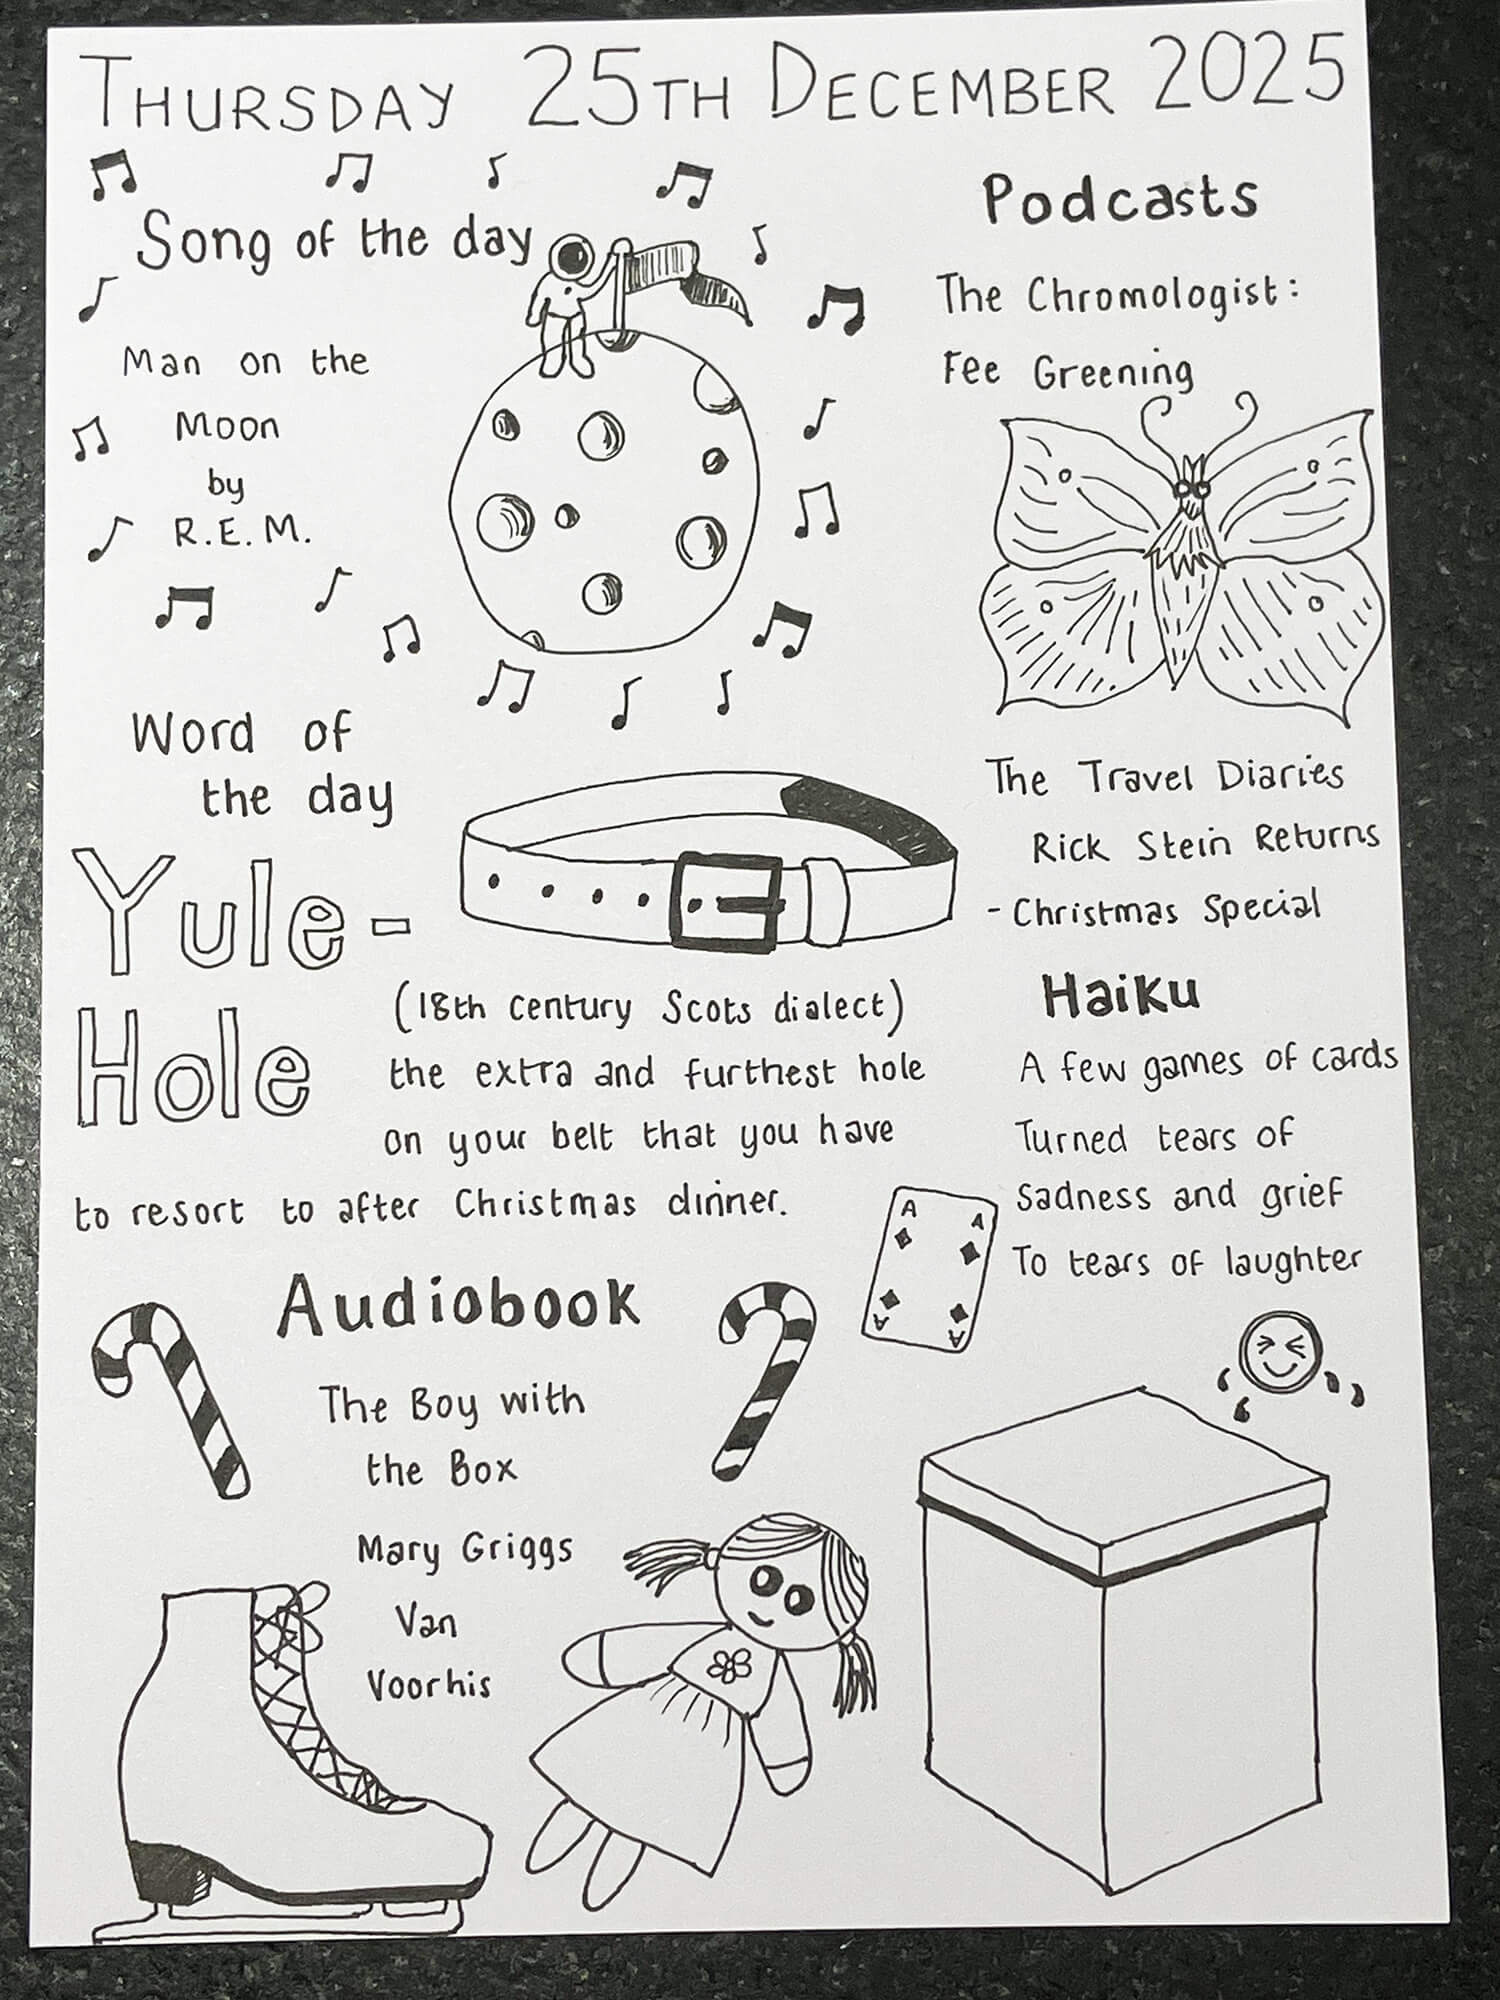 THURSDAY 25TH DECEMBER 2025
Song of the day
Man on the
Moon
by
R.E.M.
Podcasts
The Chromologist:
Fee Greening
The Travel Diaries
Rick Stein Returns
- Christmas Special
Word of
the day
Yule-
Hole
(18th century Scots dialect)
the extra and furthest hole
on your belt that you have
to resort to after Christmas dinner.
Haiku
A few games of cards
Turned tears of
sadness and grief
To tears of laughter
A A
A A
Audiobook
The Boy with
the Box
Mary Griggs
Van
Voorhis